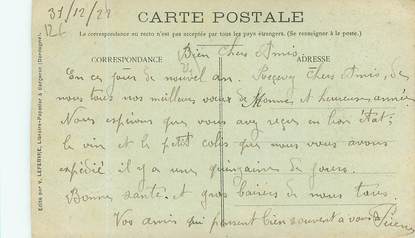 31/12/21
126
CARTE POSTALE
La correspondance au recto n'est pas acceptée par tous les pays étrangers. (Se renseigner à la poste.)
CORRESPONDANCE
ADRESSE
Bien Chers Amis.
En ces jours de nouvel an. Recevez Chers Amis, de
nous tous nos meilleurs vœux de Bonne et heureuse année
Nous espérons que vous avez reçus en bon état;
le vin et le petit colis que nous vous avons
expédié il y a une quinzaine de jours.
Bonne santé. et gros baisers de nous tous.
Vos amis qui pensent bien souvent a vous
Edité par V. LEFEBVRE, Libraire-Papetier à Bergerac (Dordogne).